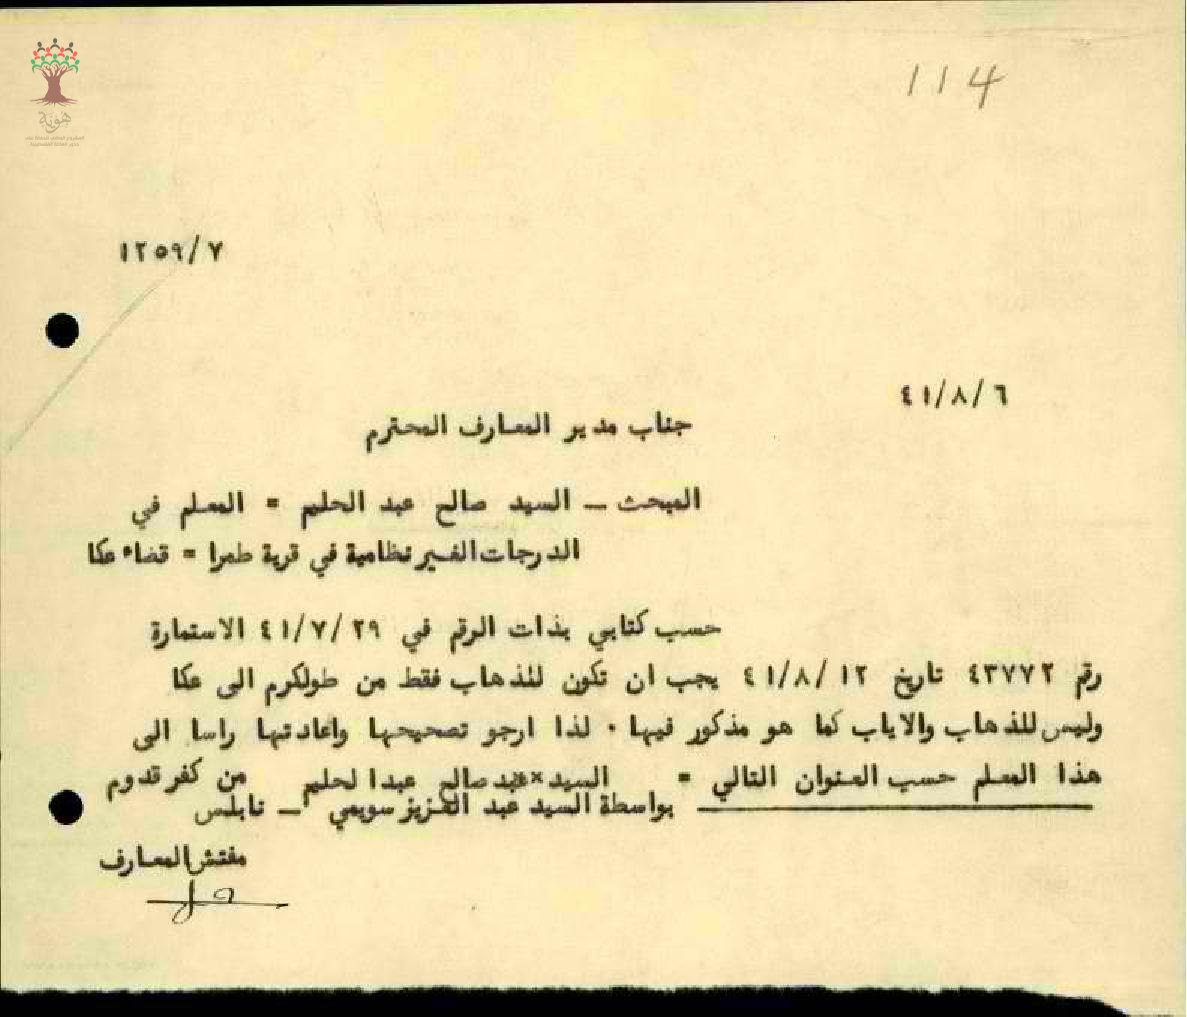 هوية
114
١٢٥٩/٧
٤١/٨/٦
جناب مدير المعارف المحترم
المبحث - السيد صالح عبد الحليم = المعلم في
الدرجات الغير نظامية في قرية طمرا = قضاء عكا
حسب كتابي بذات الرقم في ٤١/٧/٢٩ الاستمارة
رقم ٤٣٧٧٢ تاريخ ٤١/٨/١٢ يجب ان تكون للذهاب فقط من طولكرم الى عكا
وليس للذهاب والاياب كما هو مذكور فيها . لذا ارجو تصحيحها واعادتها راسا الى
هذا المعلم حسب العنوان التالي = السيد صالح عبدالحليم من كفر قدوم
بواسطة السيد عبد العزيز سويمي - نابلس
مفتش المعارف